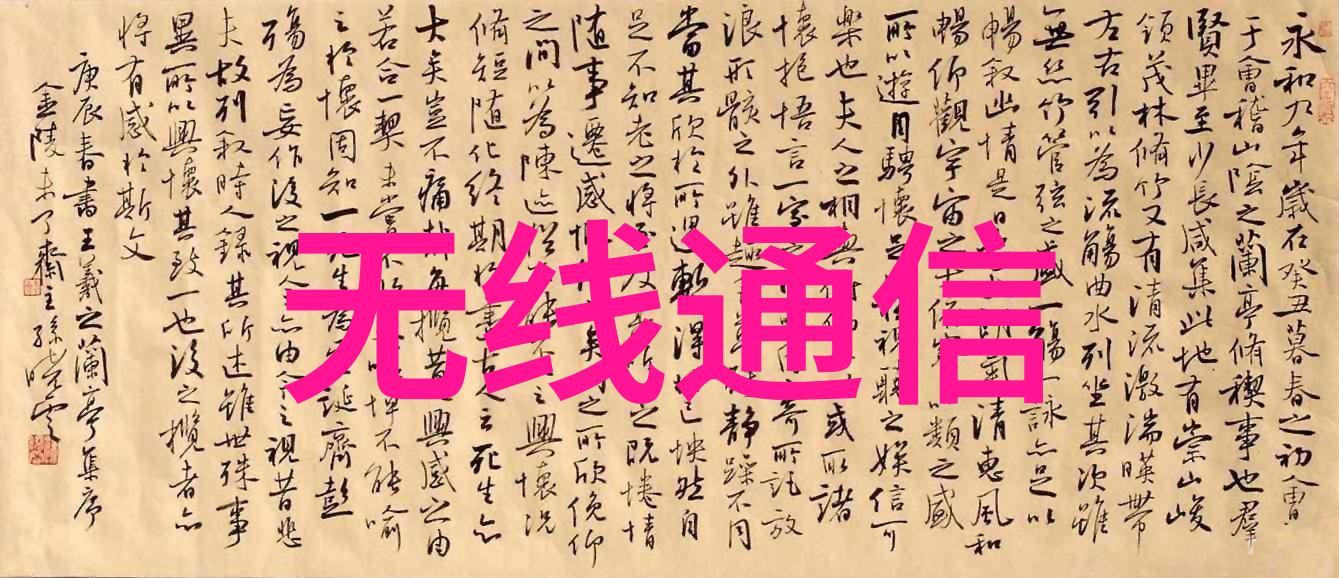 永和九年歲在癸丑暮春之初會
于會稽山陰之蘭亭脩禊事也羣
賢畢至少長咸集此地有崇山峻
領茂林脩竹又有清流激湍暎帶
左右引以為流觴曲水列坐其次雖
無絲竹管弦之盛一觴一詠亦足以
暢叙幽情是日朗氣清惠風和
暢仰觀宇宙之大類之盛
所以遊目騁懷足視聽之娛信可
樂也夫人之相與或取諸
懷抱悟言一室之寄所託放
浪形骸之外雖趣靜躁不同
當其欣於所遇暫得己怏然自
足不知老之將至及之既惓情
隨事遷感慨矣之所欣俛仰
之間以為陳迹能不之興懷況
脩短隨化終期於盡古人云死生亦
大矣豈不痛哉每攬昔興感之由
若合一契未嘗不悼不能喻
之於懷固知一死生為誕齊彭
殤為妄作後之視人亦由今之視昔悲
夫故列叙時人錄其所述雖世殊事
異所以興懷其致一也後之攬者亦
將有感於斯文
庚辰春書王羲之蘭亭集序
金陵未了齋主孫曉雲
无线通信